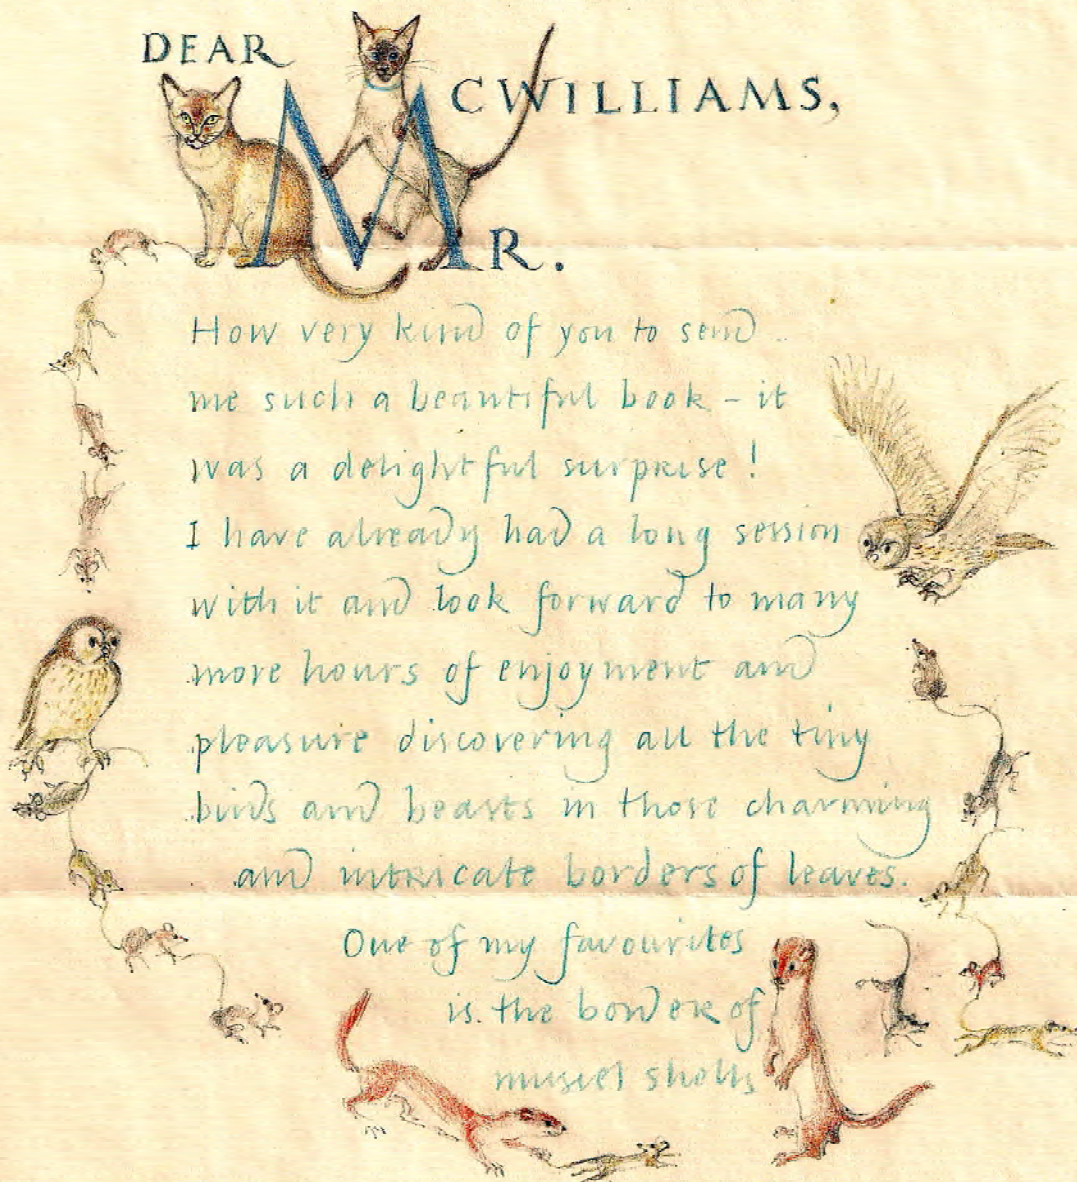 DEAR
MCWILLIAMS,
R.
How very kind of you to send
me such a beautiful book – it
was a delightful surprise!
I have already had a long session
with it and look forward to many
more hours of enjoyment and
pleasure discovering all the tiny
birds and beasts in those charming
and intricate borders of leaves.
One of my favourites
is the border of
mussel shells